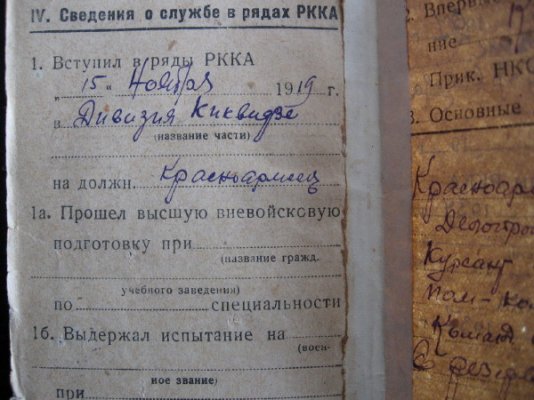 IV. Сведения о службе в рядах РККА
1. Вступил в ряды РККА
„15“ Ноября 1919 г.
в Дивизия Киквидзе
(название части)
на должн. Красноармеец
1а. Прошел высшую вневойсковую
подготовку при
(название гражд.
учебного заведения)
по специальности
1б. Выдержал испытание на
(воен-
ное звание)
при
2. Впервы
ние
Прик. НКО
3. Основные
Красноар
Курсант
Пом-ко